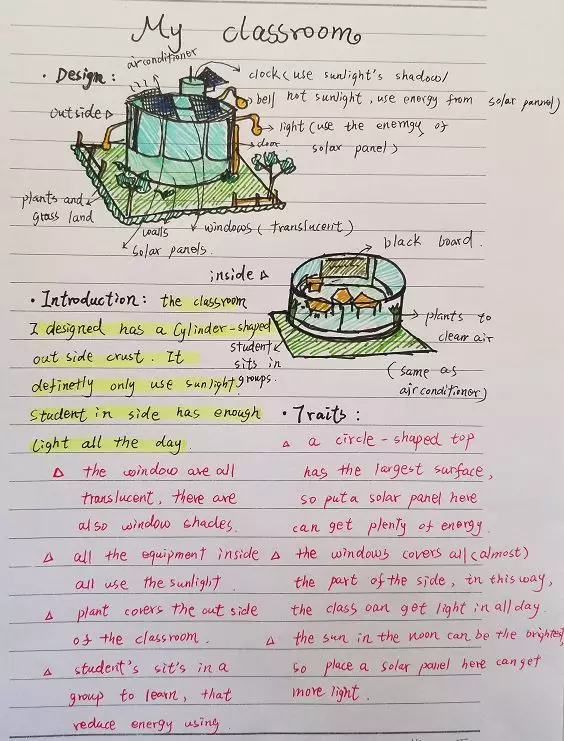 My classroom
• Design:
airconditioner
clock (use sunlight's shadow)
bell not sunlight, use energy from solar pannel)
outside
light (use the enemgy of
solar panel)
door
plants and
grass land
walls
solar panels.
windows (translucent)
black board.
inside
plants to
clean air
(same as
airconditioner)
student
sits in
groups.
• Introduction: the classroom
I designed has a Cylinder-shaped
out side crust. It
definetly only use sunlight.
Student in side has enough
light all the day.
△ the window are all
translucent, there are
also window shades.
△ all the equipment inside
all use the sunlight.
△ plant covers the out side
of the classroom.
△ student's sit's in a
group to learn, that
reduce energy using.
• Traits:
△ a circle-shaped top
has the largest surface,
so put a solar panel here
can get plenty of energy.
△ the windows covers all (almost)
the part of the side, in this way,
the class can get light in all day.
△ the sun in the noon can be the brightest,
so place a solar panel here can get
more light.